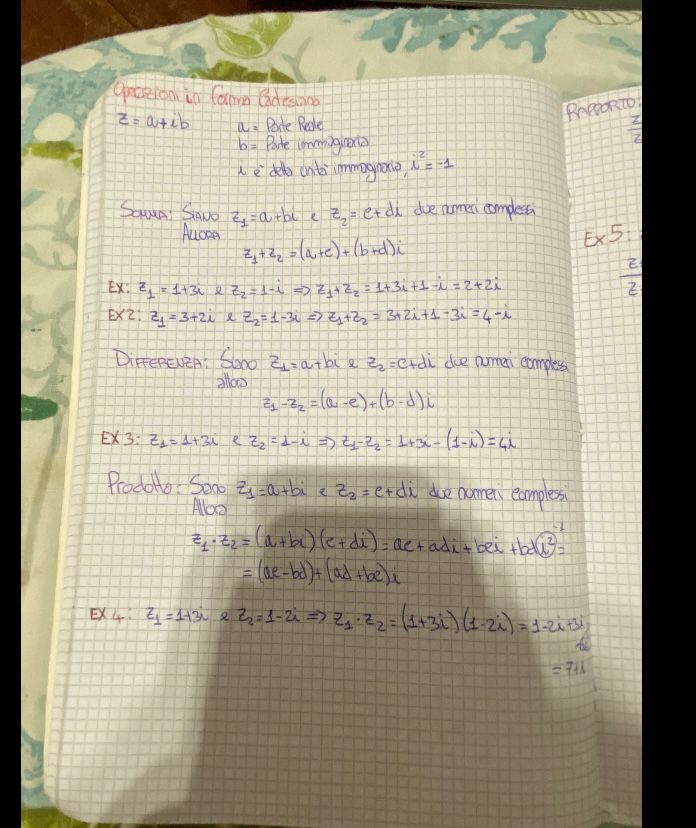 Operazioni in forma Cartesiana
z = a+ib a = Parte Reale
b = Parte immaginaria
i è detta unità immaginaria, i² = -1
SOMMA: SIANO z₁ = a+bi e z₂ = c+di due numeri complessi
ALLORA
z₁+z₂ = (a+c)+(b+d)i
EX: z₁ = 1+3i e z₂ = 1-i ⇒ z₁+z₂ = 1+3i+1-i = 2+2i
EX2: z₁ = 3+2i e z₂ = 1-3i ⇒ z₁+z₂ = 3+2i+1-3i = 4-i
DIFFERENZA: Siano z₁ = a+bi e z₂ = c+di due numeri complessi
allora
z₁-z₂ = (a-c)+(b-d)i
EX 3: z₁ = 1+3i e z₂ = 1-i ⇒ z₁-z₂ = 1+3i-(1-i) = 4i
Prodotto: Siano z₁ = a+bi e z₂ = c+di due numeri complessi
Allora
z₁·z₂ = (a+bi)(c+di) = ac+adi+bci+bdi² =
-1
= (ac-bd)+(ad+bc)i
EX 4: z₁ = 1+3i e z₂ = 1-2i ⇒ z₁·z₂ = (1+3i)(1-2i) = 1-2i+3i
= 7+i
RAPPORTO:
z
z
Ex 5:
z
z